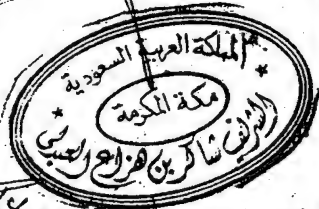 المملكة العربية السعودية
مكة المكرمة
الشريف شاكر بن هزاع العبدلي